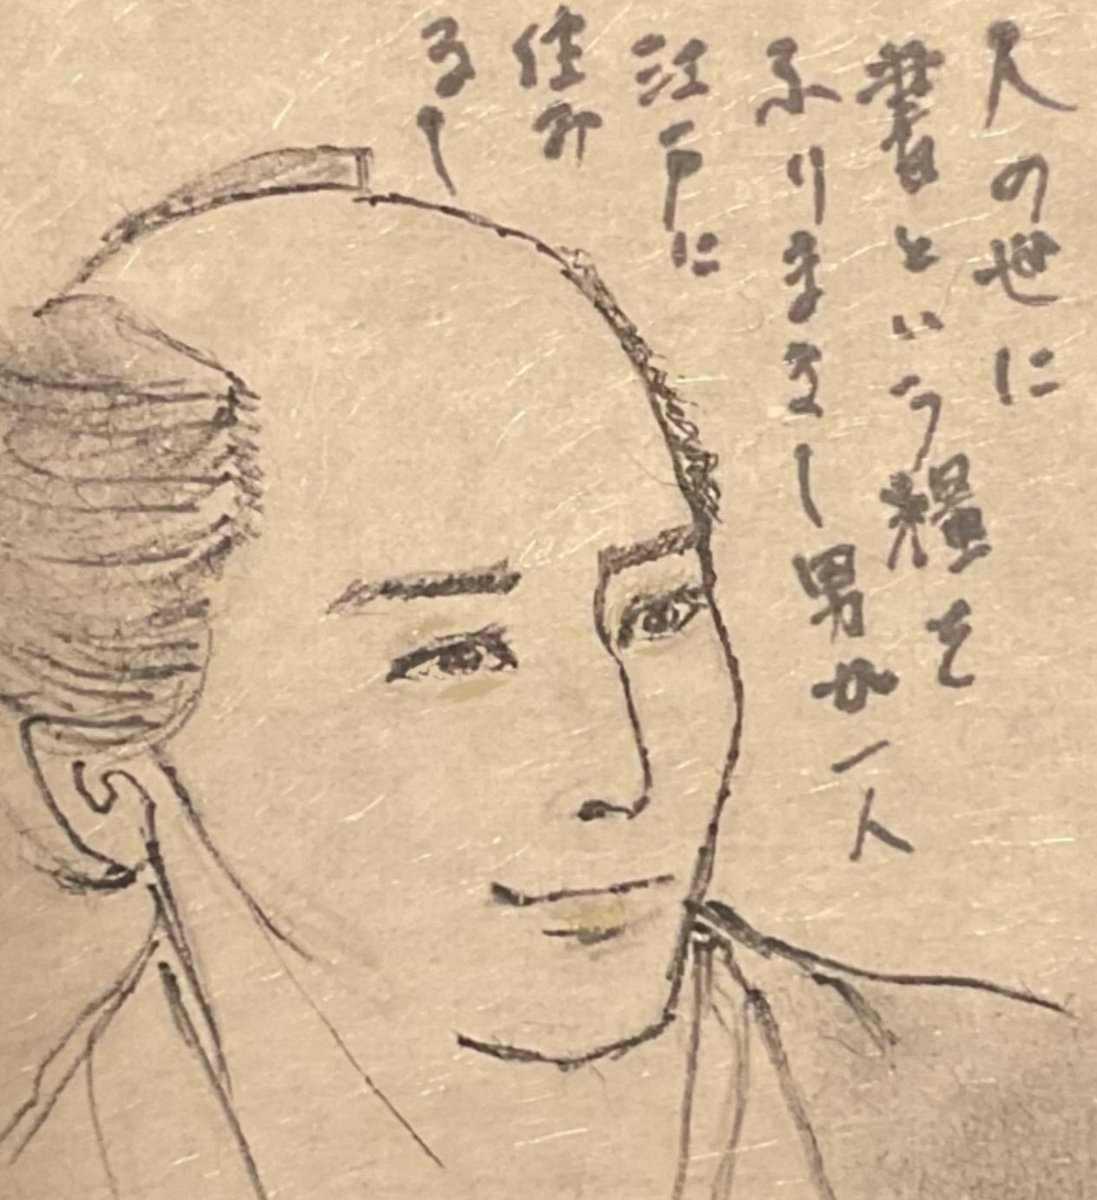 人の世に
書という糧を
ふりまきし男が一人
江戸に
住